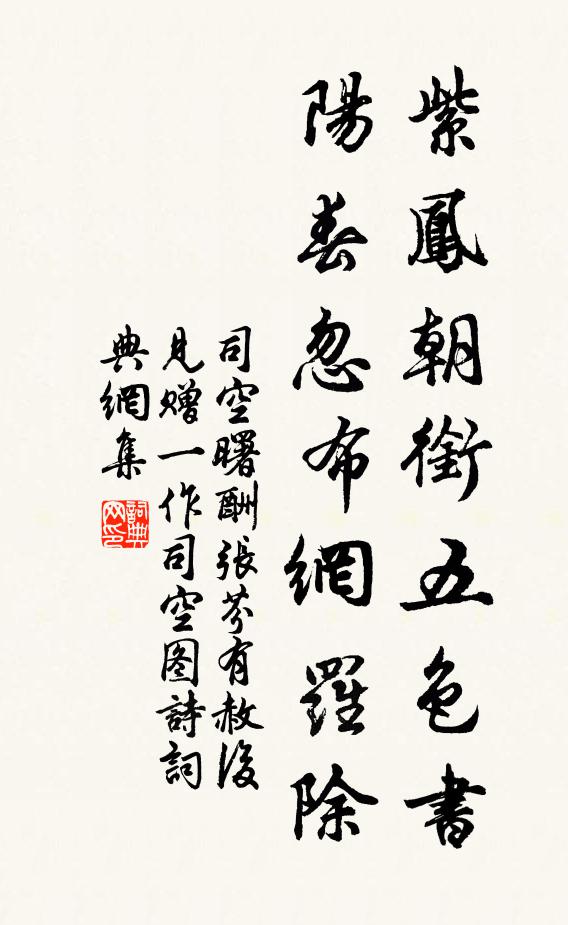 紫鳳朝銜五色書
陽春忽布網羅除
司空曙酬張芬有赦後
見贈一作司空图詩詞
典網集
詞典
网印